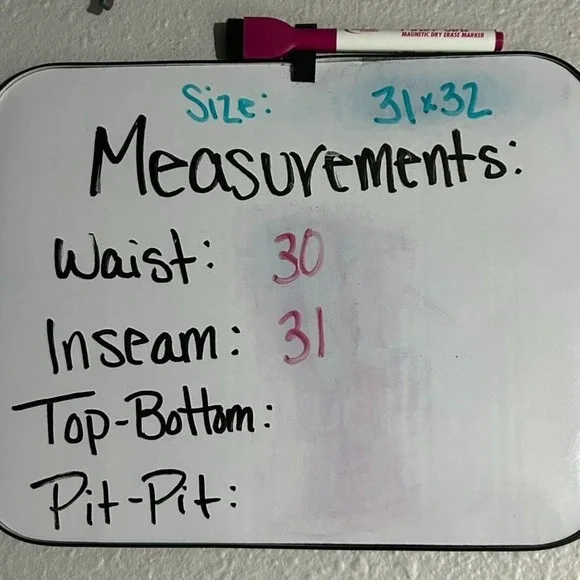 MAGNETIC DRY ERASE MARKER
Size: 31x32
Measurements:
Waist: 30
Inseam: 31
Top-Bottom:
Pit-Pit: